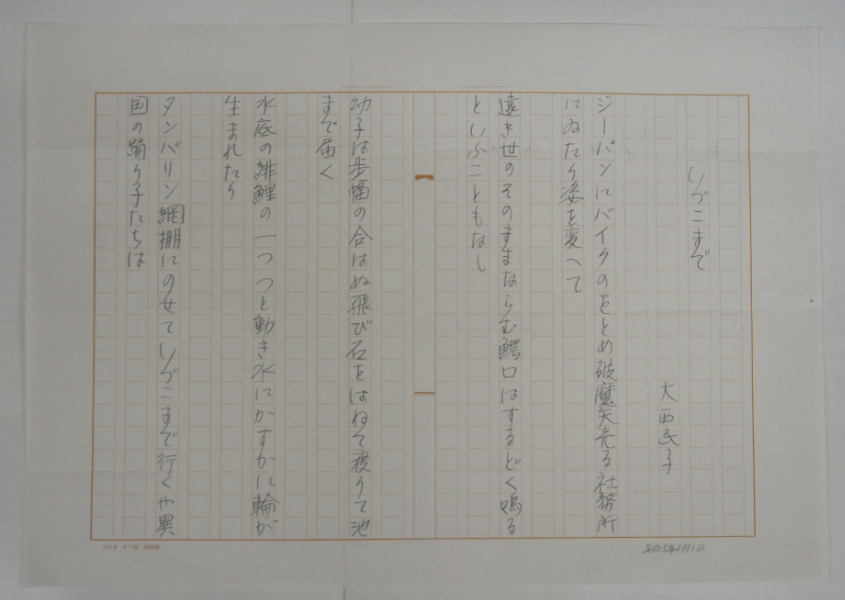 いづこまで
大西民子
ジーパンにバイクのをとめ破魔矢売る社務所
にゐたり姿を変へて
遠き世のそのままならむ鰐口はするどく鳴る
といふこともなし
幼子は歩幅の合はぬ飛び石をはねて渡りて池
まで届く
水底の緋鯉の一つつと動き水にかすかに輪が
生まれたり
タンバリン網棚にのせていづこまで行くや異
国の踊り子たちは